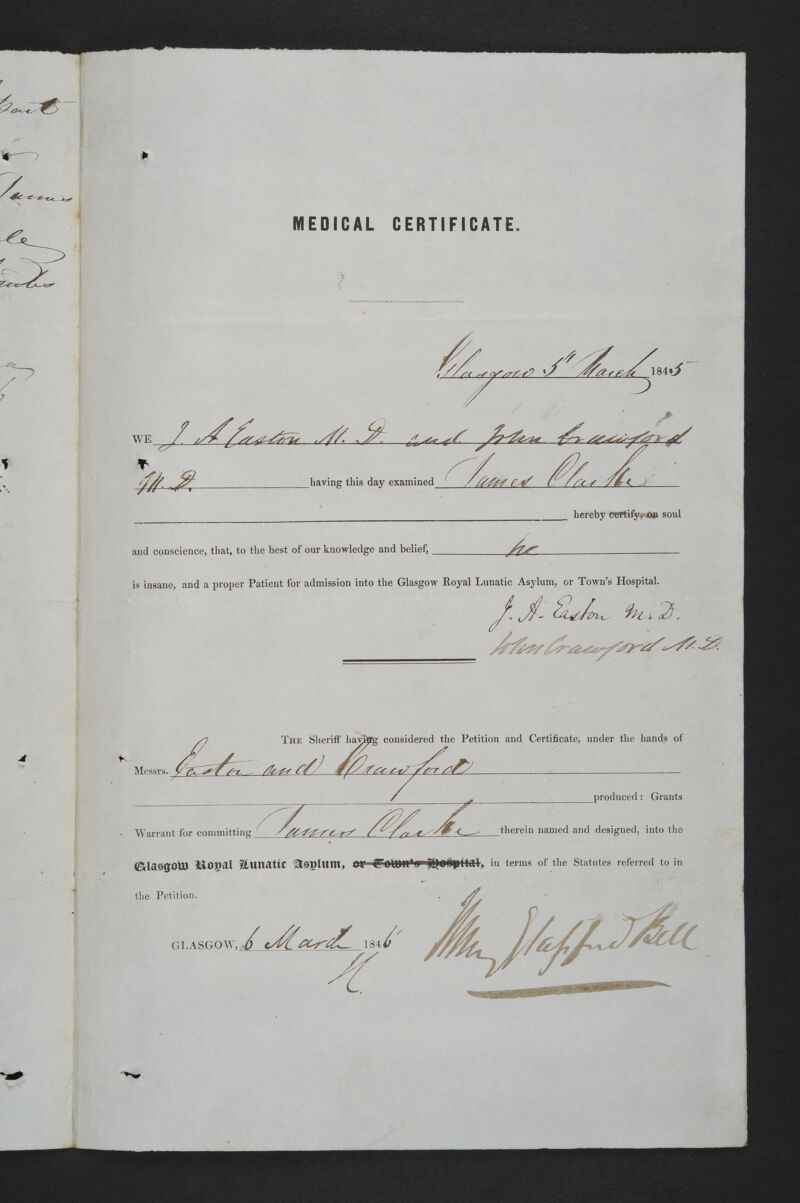 James
MEDICAL CERTIFICATE.
Glasgow 5th March 1845
WE J. A Easton M. D. and John Crawford
M. D. having this day examined James Clarke
hereby certify, on soul
and conscience, that, to the best of our knowledge and belief, he
is insane, and a proper Patient for admission into the Glasgow Royal Lunatic Asylum, or Town's Hospital.
J. A. Easton M. D.
John Crawford M. D.
THE Sheriff having considered the Petition and Certificate, under the hands of
Messrs. Easton and Crawford
produced: Grants
Warrant for committing James Clarke therein named and designed, into the
Glasgow Royal Lunatic Asylum, or Town's Hospital, in terms of the Statutes referred to in
the Petition.
GLASGOW, 6 March 1846 Henry Glassford Bell